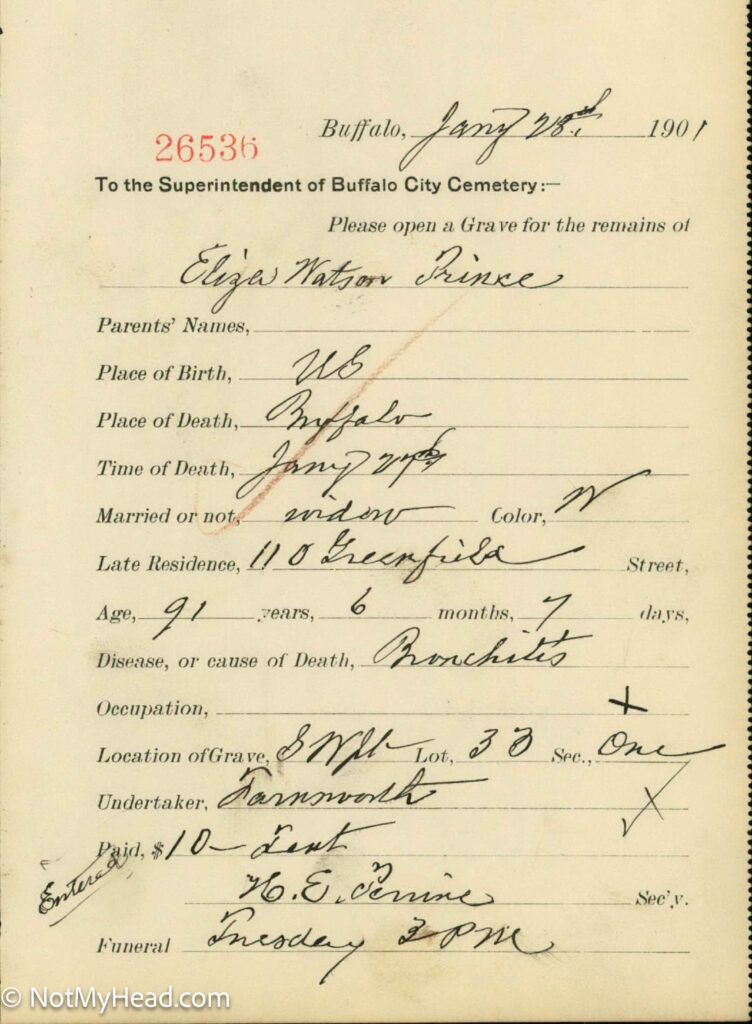 Buffalo, Jany 28th 1901
26536
To the Superintendent of Buffalo City Cemetery:—
Please open a Grave for the remains of
Eliza Watson Prince
Parents' Names,
Place of Birth, US
Place of Death, Buffalo
Time of Death, Jany 27th
Married or not, widow Color, W
Late Residence, 110 Greenfield Street,
Age, 91 years, 6 months, 7 days,
Disease, or cause of Death, Bronchitis
Occupation,
Location of Grave, Lot, 33 Sec., One
Undertaker, Farnsworth
Paid, $10— Tent
Entered
H. E. Perrine Sec'y.
Funeral Tuesday 3 PM
© NotMyHead.com